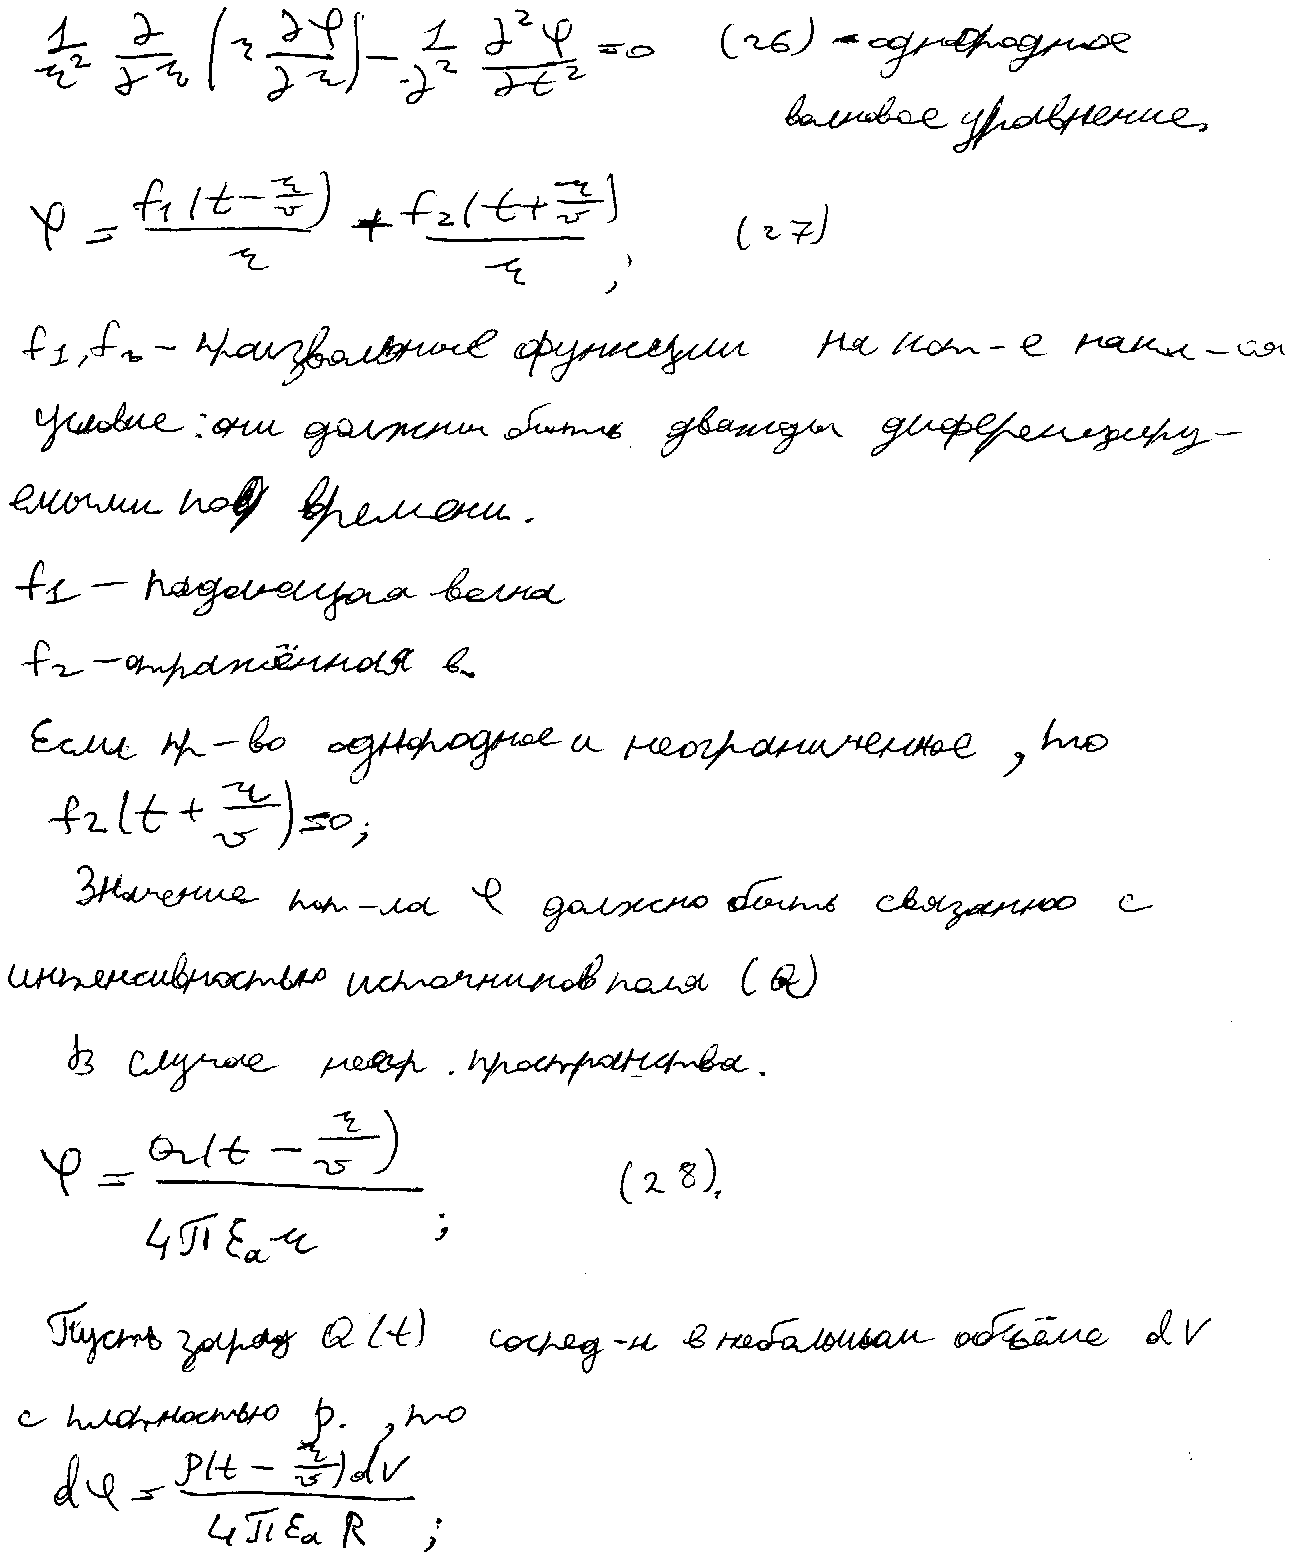 1/r² ∂/∂r (r ∂φ/∂r) - 1/∂² ∂²φ/∂t² = 0 (26) - однородное
волновое уравнение.
φ = f₁(t - r/v)/r + f₂(t + r/v)/r ; (27)
f₁, f₂ - произвольные функции на кот-е накл-ся
условие: они должны быть дважды диференциру-
емыми по времени.
f₁ - падающая волна
f₂ - отражённая в.
Если пр-во однородное и неограниченное, то
f₂(t + r/v) = 0;
Значение пот-ла φ должно быть связанно с
интенсивностью источников поля (Q)
В случае неогр. пространства.
φ = Q(t - r/v)/4πεₐr ; (28).
Пусть заряд Q(t) сосред-н в небольшом объёме dV
с плотностью ρ. , то
dφ = ρ(t - r/v)dV/4πεₐR ;